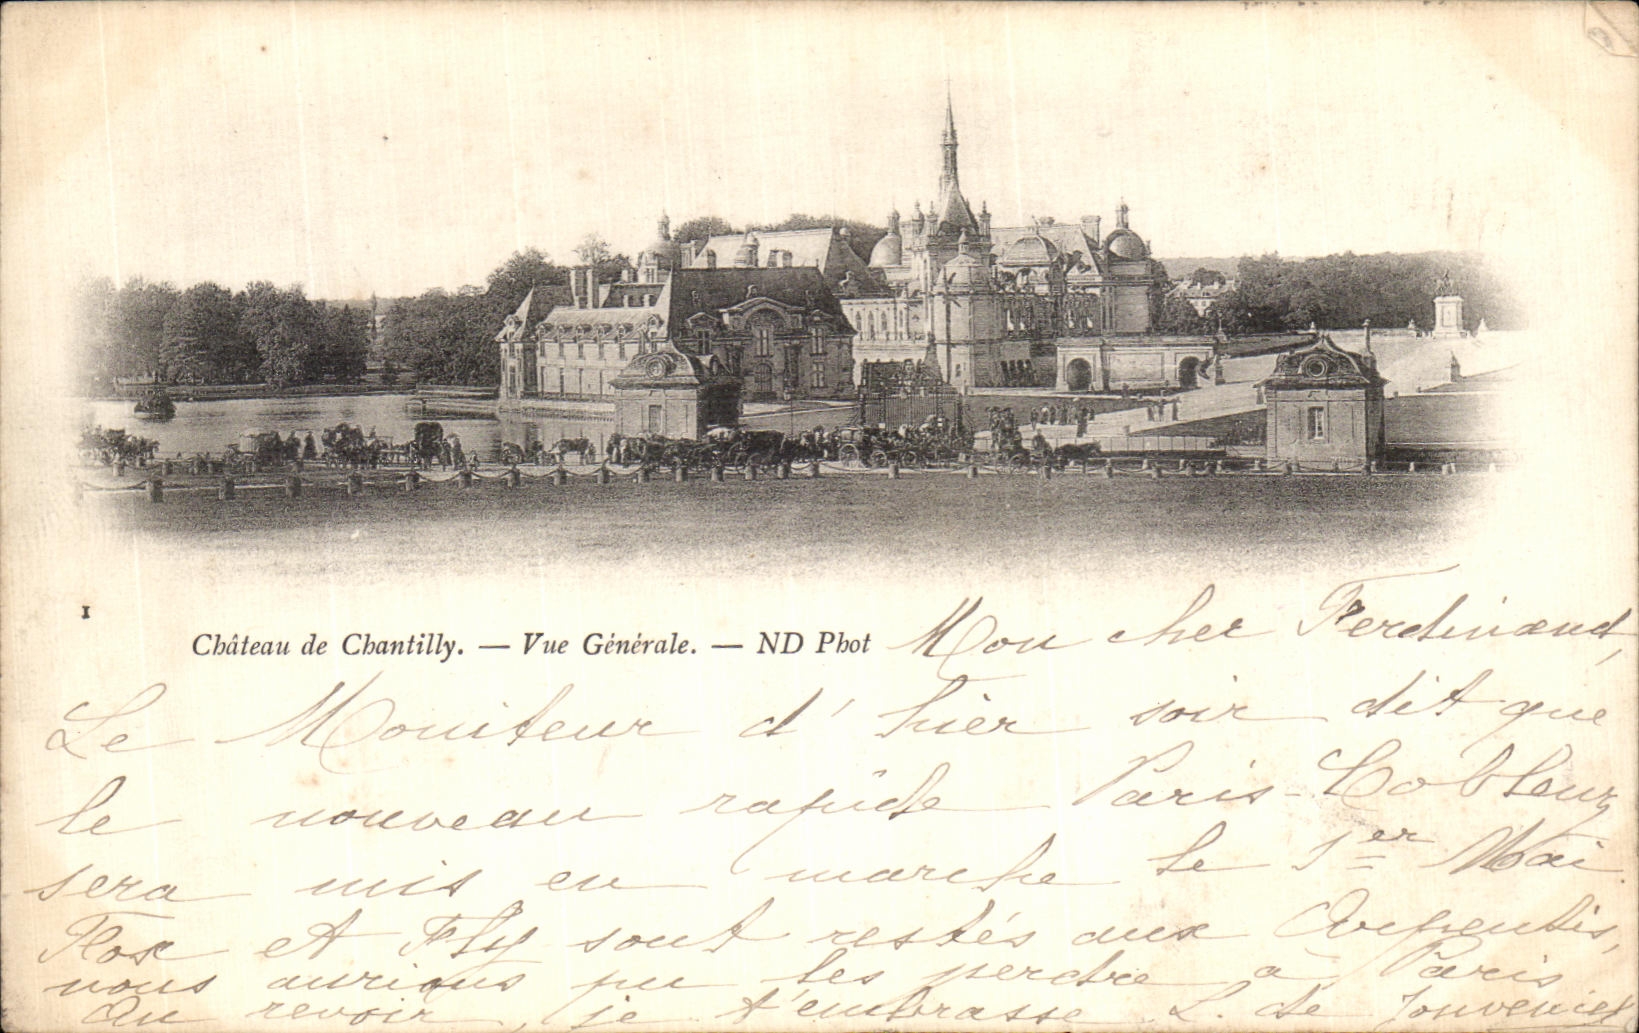 1
Château de Chantilly. — Vue Générale. — ND Phot
Mon cher Ferdinand,
Le Moniteur d'hier soir dit que
le nouveau rapide Paris-Coblenz
sera mis en marche le 1er Mai.
et Fly sont restés aux
nous aurions pu les perdre à Paris
Au revoir, je t'embrasse L. de Jouvenel